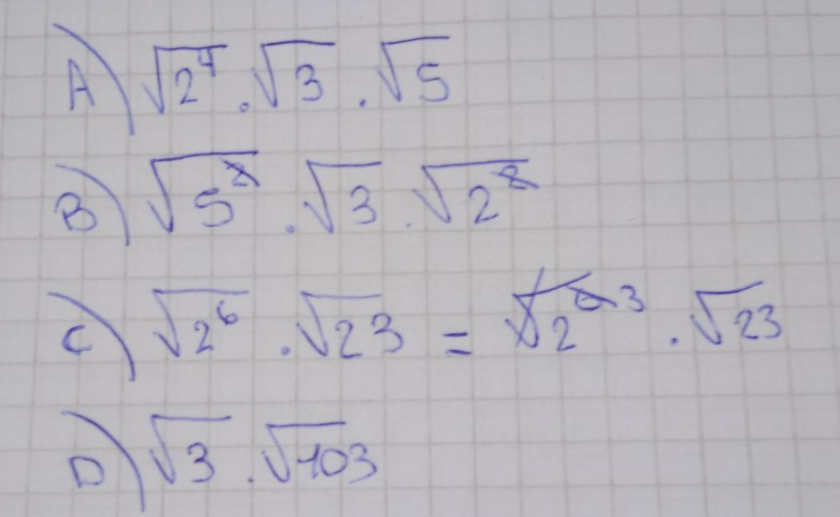 A) √2⁴ . √3 . √5
B) √5² . √3 . √2²
C) √2⁶ . √23 = √2⁶ ³ . √23
D) √3 . √103